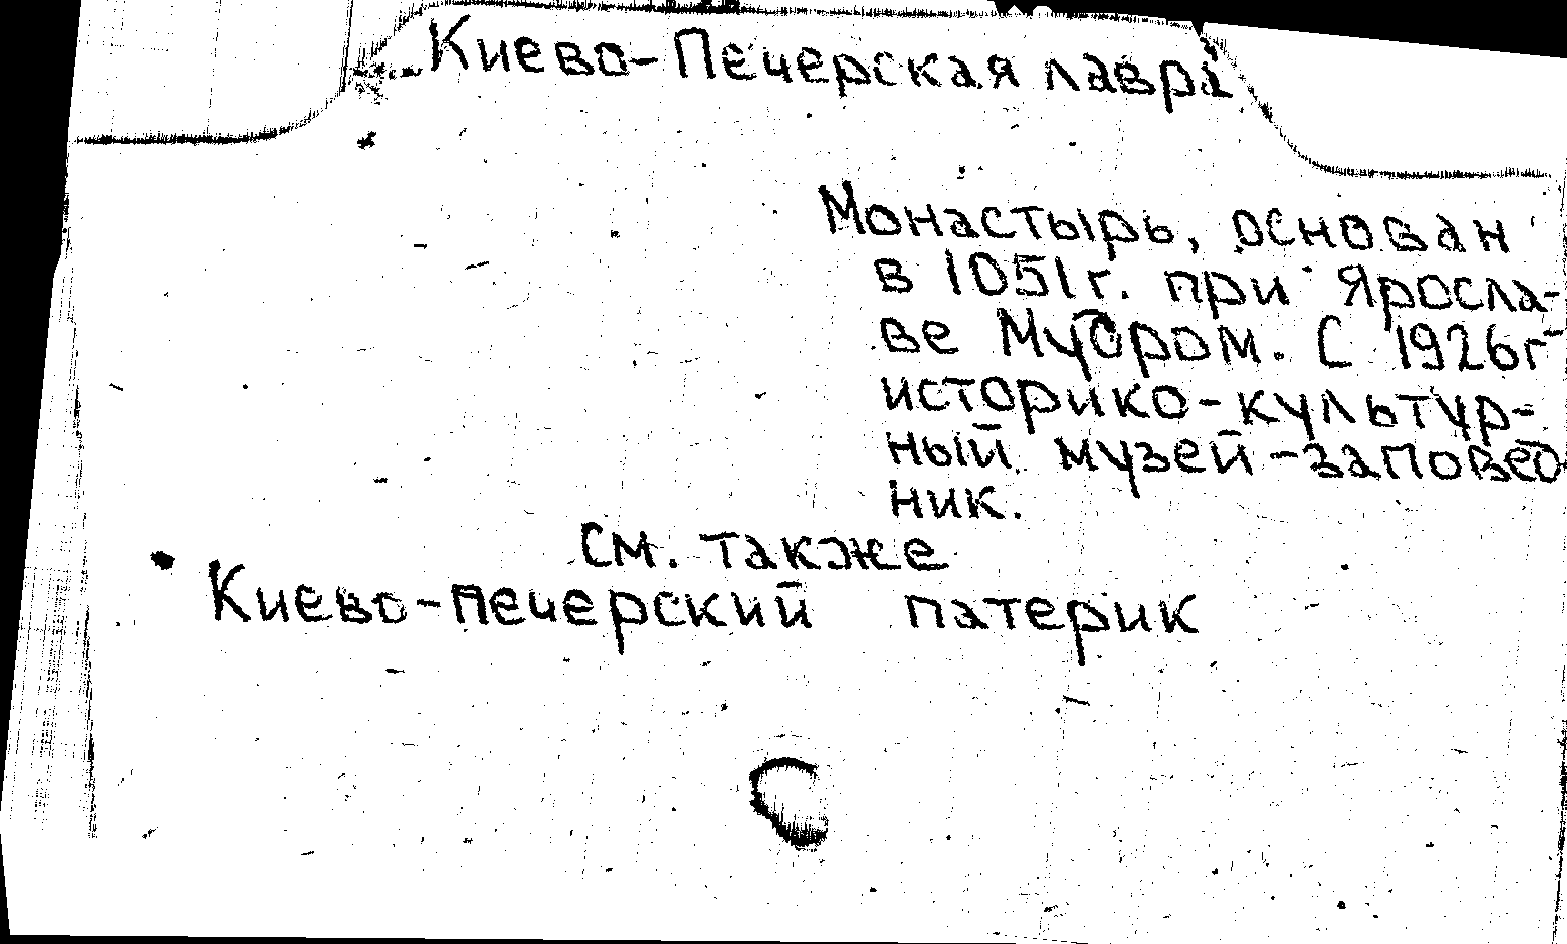 Киево-Печерская лавра
Монастырь, основан
в 1051г. при Яросла-
ве Мудром. С 1926г
историко-культур-
ный музей-заповед-
ник.
См. также
Киево-печерский патерик